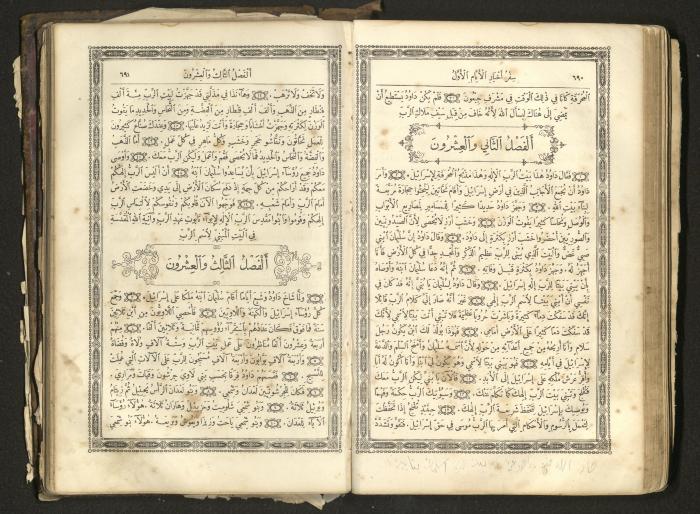 ٦٩٠
سفر أخبار الأيام الأول
المحرقة كانا في ذلك الوقت في مشرف جبعون فلم يكن داود يستطيع أن
يمضي إلى هناك ليسأل الله لأنه خاف من قبل سيف ملاك الرب
الفصل الثاني والعشرون
فقال داود هذا بيت الرب الإله وهذا مذبح المحرقة لإسرائيل وأمر
داود أن تجمع الأجانب الذين في أرض إسرائيل وأقام نحاتين لينحتوا حجارة مربعة
لبناء بيت الله وجهز داود حديدا كثيرا للمسامير لمصاريع الأبواب
والوصل ونحاسا كثيرا يفوت الوزن وخشب أرز لا يحصى لأن الصيدونيين
والصوريين أحضروا خشب أرز بكثرة إلى داود وقال داود إن سليمان ابني
صبي غض والبيت الذي يبنى للرب عظيم الذكر والمجد جدا في كل الأرض فأنا
أجهز له وجهز داود بكثرة قبل وفاته ثم إنه دعا سليمان ابنه وأوصاه
أن يبني بيتا للرب إله إسرائيل وقال داود لسليمان يا بني إنه قد كان في
نفسي أن أبني بيتا لاسم الرب إلهي غير أنه صار إلي كلام الرب قائلا
قد سفكت دماء كثيرة وباشرت حروبا عظيمة فلا تبني أنت بيتا لاسمي لأنك
قد سفكت دما كثيرا على الأرض أمامي فهوذا يولد لك ابن يكون رجل
سلام وأنا أريحه من جميع أعدائه من حوله لأن اسمه سليمان وأمنح السلم والدعة
لإسرائيل في أيامه فهو يبني بيتا لاسمي وهو يكون لي ابنا وأنا أكون له أبا
وأقر عرش ملكه على إسرائيل إلى الأبد فالآن يا بني ليكن الرب معك
فتفلح وتبني بيت الرب إلهك كما تكلم عنك وليؤتك الرب حكمة وفهما
ويوصيك بإسرائيل لتحفظ شريعة الرب إلهك حينئذ تفلح إذا تحفظت
لتعمل بالرسوم والأحكام التي أمر بها الرب موسى في حق إسرائيل فتقو وتشدد
الفصل الثالث والعشرون
٦٩١
ولا تخف ولا ترهب وهاءنذا في مذلتي قد جهزت لبيت الرب مئة ألف
قنطار من الذهب وألف ألف قنطار من الفضة ومن النحاس والحديد ما يفوت
الوزن لكثرته وجهزت أخشابا وحجارة وأنت تزيد عليها وعندك صناع كثيرون
للعمل نحاتون وبناؤو حجر وخشب وكل ماهر في كل عمل أما الذهب
والفضة والنحاس والحديد فلا يحصى فقم واعمل وليكن الرب معك وأوصى
داود جميع رؤساء إسرائيل أن يساعدوا سليمان ابنه أن أليس الرب إلهكم
معكم وقد أراحكم من كل جهة إذ دفع سكان الأرض إلى يدي وخضعت الأرض
أمام الرب وأمام شعبه فوجهوا الآن قلوبكم ونفوسكم لالتماس الرب
إلهكم وقوموا وابنوا مقدس الرب الإله ليؤتى بتابوت عهد الرب وآنية الله المقدسة
في البيت المبني لاسم الرب
الفصل الثالث والعشرون
ولما شاخ داود وشبع أياما أقام سليمان ابنه ملكا على إسرائيل وجمع
كل رؤساء إسرائيل والكهنة واللاويين فأحصي اللاويون من ابن ثلاثين
سنة فما فوق فكان عددهم بأسمائهم رؤوسهم ثمانية وثلاثين ألفا منهم
أربعة وعشرون ألفا لمناظرين على عمل بيت الرب وستة آلاف ولاة وقضاة
وأربعة آلاف بوابون وأربعة آلاف مسبحون للرب على الآلات التي عملت
للتسبيح وقسمهم داود فرقا بحسب بني لاوي جرشون وقهات ومراري
فكان للجرشونيين لعدان وشمعي وبنو لعدان الرأس يحيئيل ثم زيتام
ويوئيل ثلاثة وبنو شمعي شلوميت وحزيئيل وهاران ثلاثة هؤلاء رؤساء
الآباء للعدان وبنو شمعي ياحت وزيزا ويعوش وبريعة هؤلاء بنو شمعي